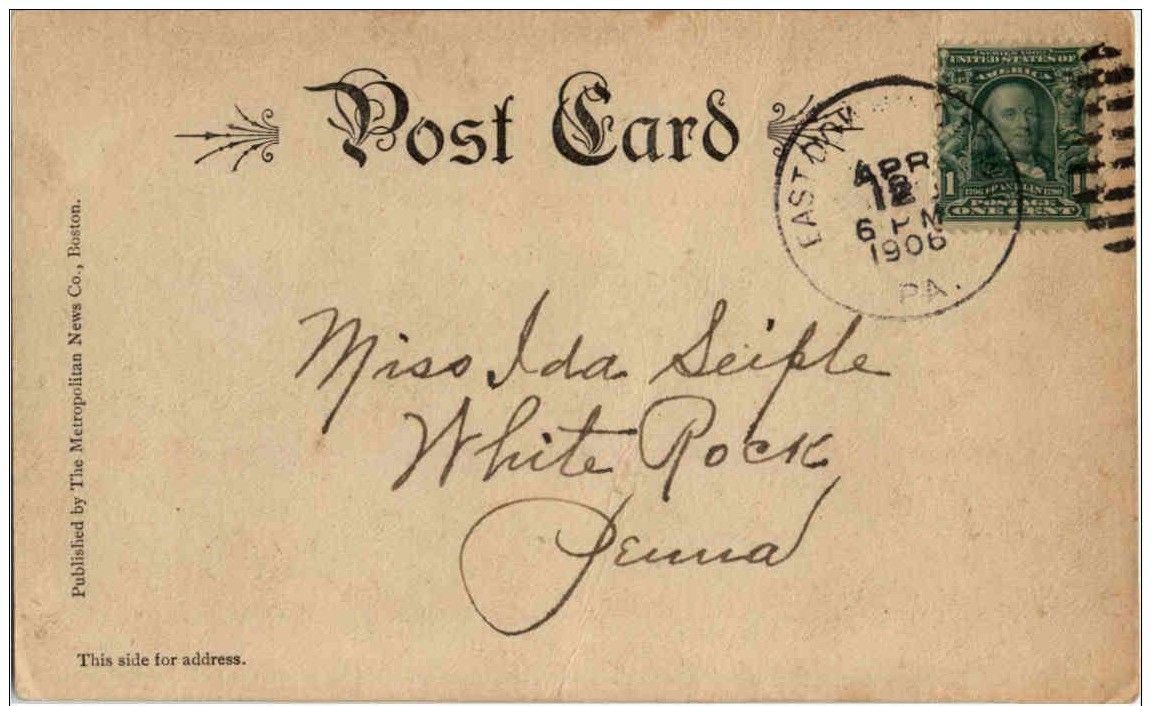 Post Card
UNITED STATES OF
AMERICA
1 FRANKLIN 1
POSTAGE
ONE CENT
EAST
APR
12
6 PM
1906
PA.
Miss Ida Seiple
White Rock
Penna
Published by The Metropolitan News Co., Boston.
This side for address.